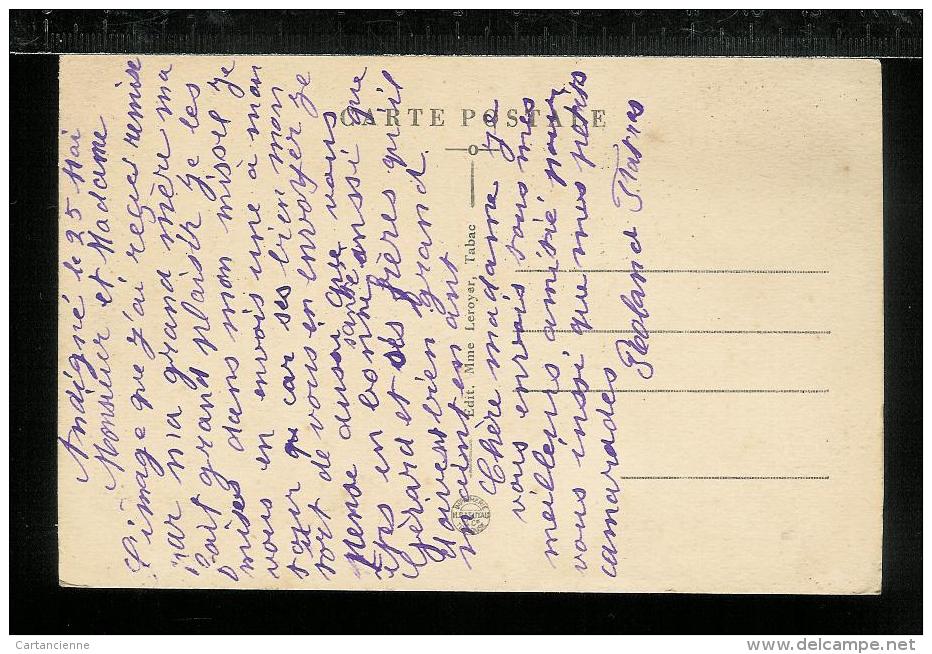 Andigné le 25 Mai
Monsieur et Madame
L'image que j'ai reçus remise
par ma grand mère ma
fait grand plaisir je les
mises dans mon misoil je
vous en envois une à mon
tour car ses bien mon
tort de vous en envoyer je
pense aussi que vous
êtes en bonne santé ansi que
Gérard et ses frères qu'il
doivent bien grand
maintenant.
Chère madame je
vous envois tous mes
meilleurs amitié pour
vous insi que mes petits
camarades
Roland
CARTE POSTALE
Edit. Mme Leroyer, Tabac
Cartancienne
delcampe.net